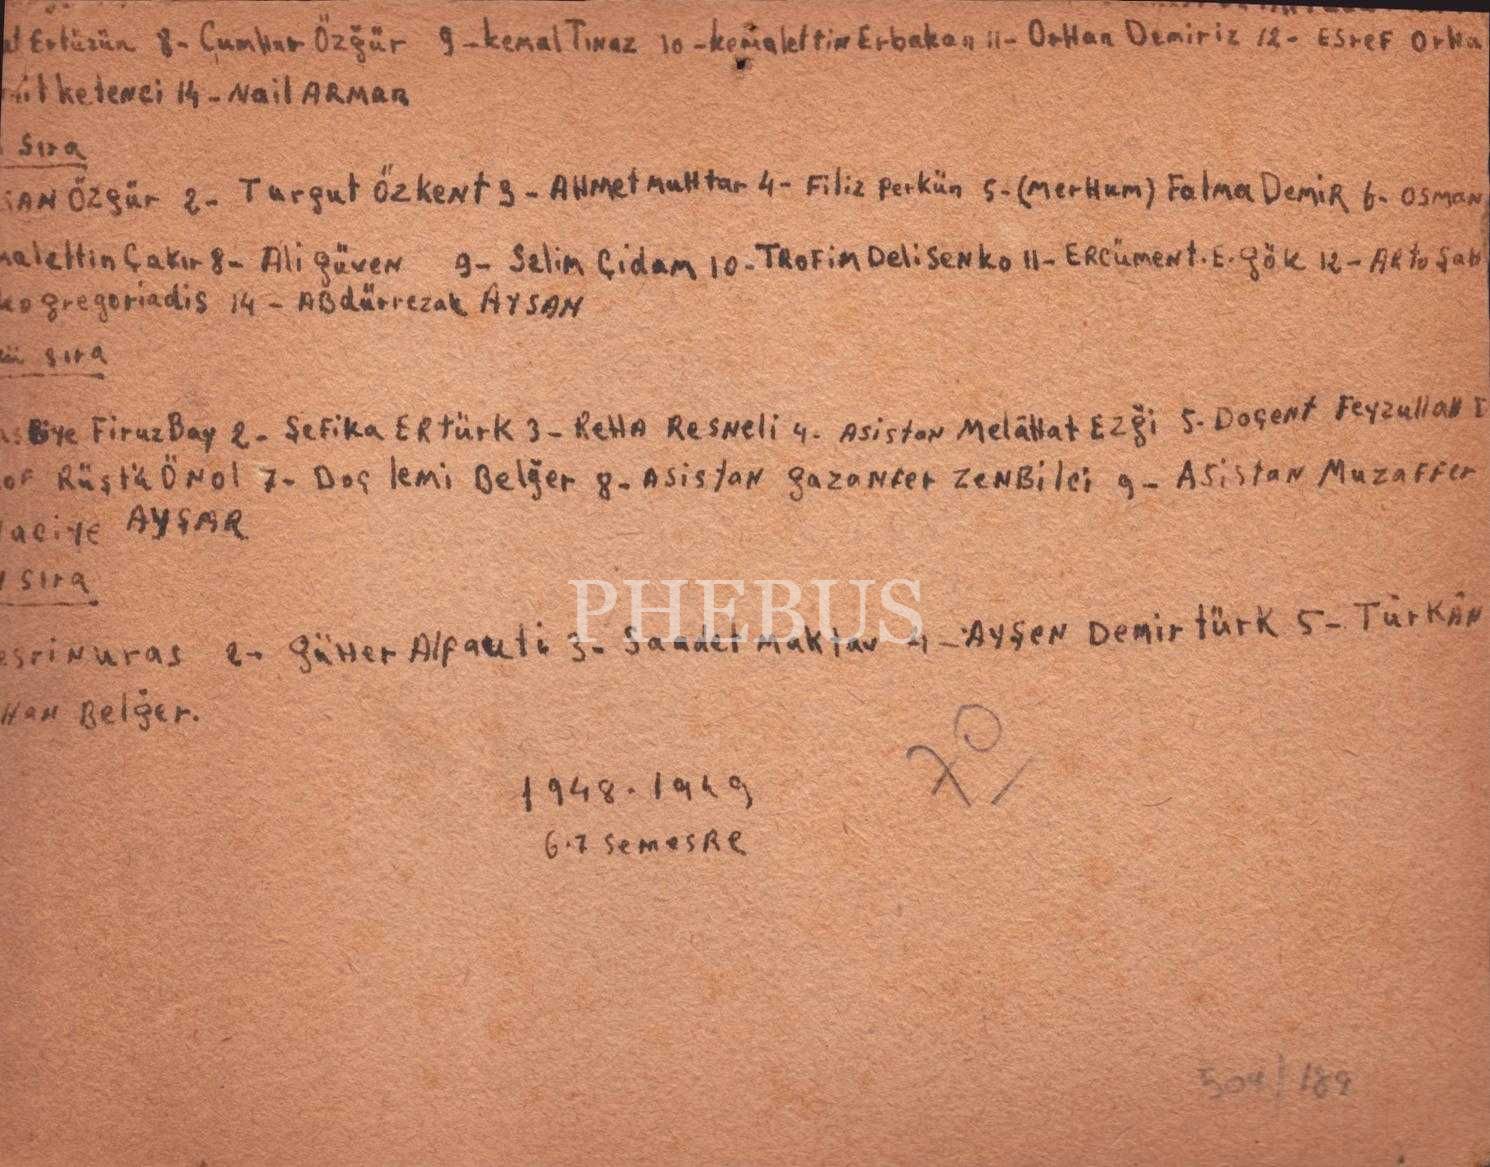 Ertüzün 8- Cumhur Özğür 9- kemal Tınaz 10- kemalettin Erbakan 11- Orhan Demiriz 12- Esref Orha
ketenci 14- Nail ARMAN
Sıra
SAN Özgür 2- Turgut Özkent 3- AHMet muHtar 4- Filiz perkün 5- (merHum) Fatma Demir 6- OSMAN
malettin Çakır 8- Ali güven 9- Selim Çidam 10- TROFiM DeliSeNko 11- ERCüment. E. gök 12- Akto Şah
ko gregoriadis 14- ABdürrezak AYSAN
sıra
FiruzBay 2- ŞeFika ERtürk 3- ReHA ResNeli 4- Asistan MelâHat Ezği 5- Doçent FeyzullaH D
of Rüştü ÖNol 7- Doç lemi Belğer 8- ASistaN gazaNfer ZeNBilci 9- ASistaN Muzaffer
Naciye AYŞAR
Sıra
esriNuras 2- güHer Alpauti 3- Saadet Maktav 4- AYŞeN Demirtürk 5- TürKÂN
HAN Belğer.
1948.1949
6.7 SemesRe
PHEBUS
504/189